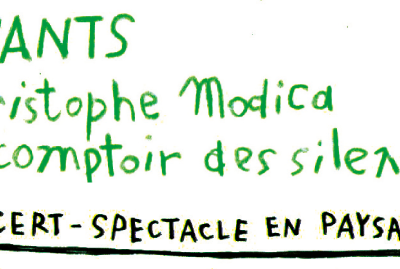 VANTS
ristophe Modica
comptoir des silen
CERT-SPECTACLE EN PAYSA